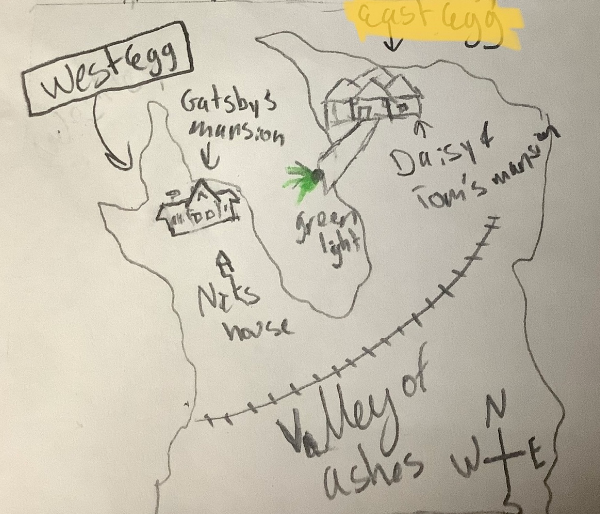 east egg
West egg
Gatsby's
mansion
Daisy &
Tom's mansion
green
light
Niks
house
Valley of
ashes
N
W E